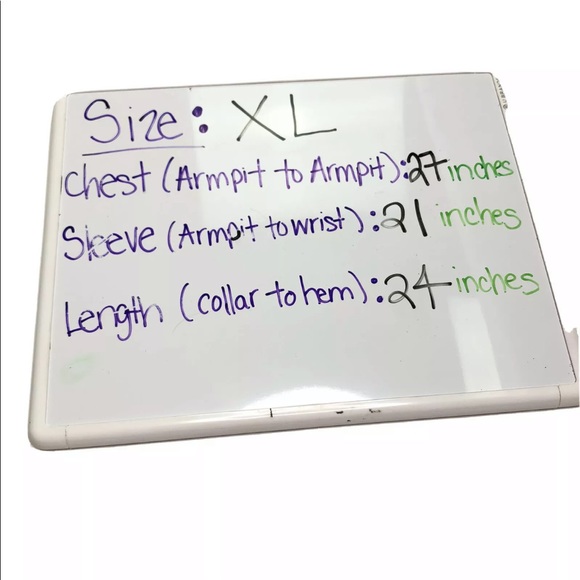 Size: XL
Chest (Armpit to Armpit): 27 inches
Sleeve (Armpit to wrist): 21 inches
Length (collar to hem): 24 inches